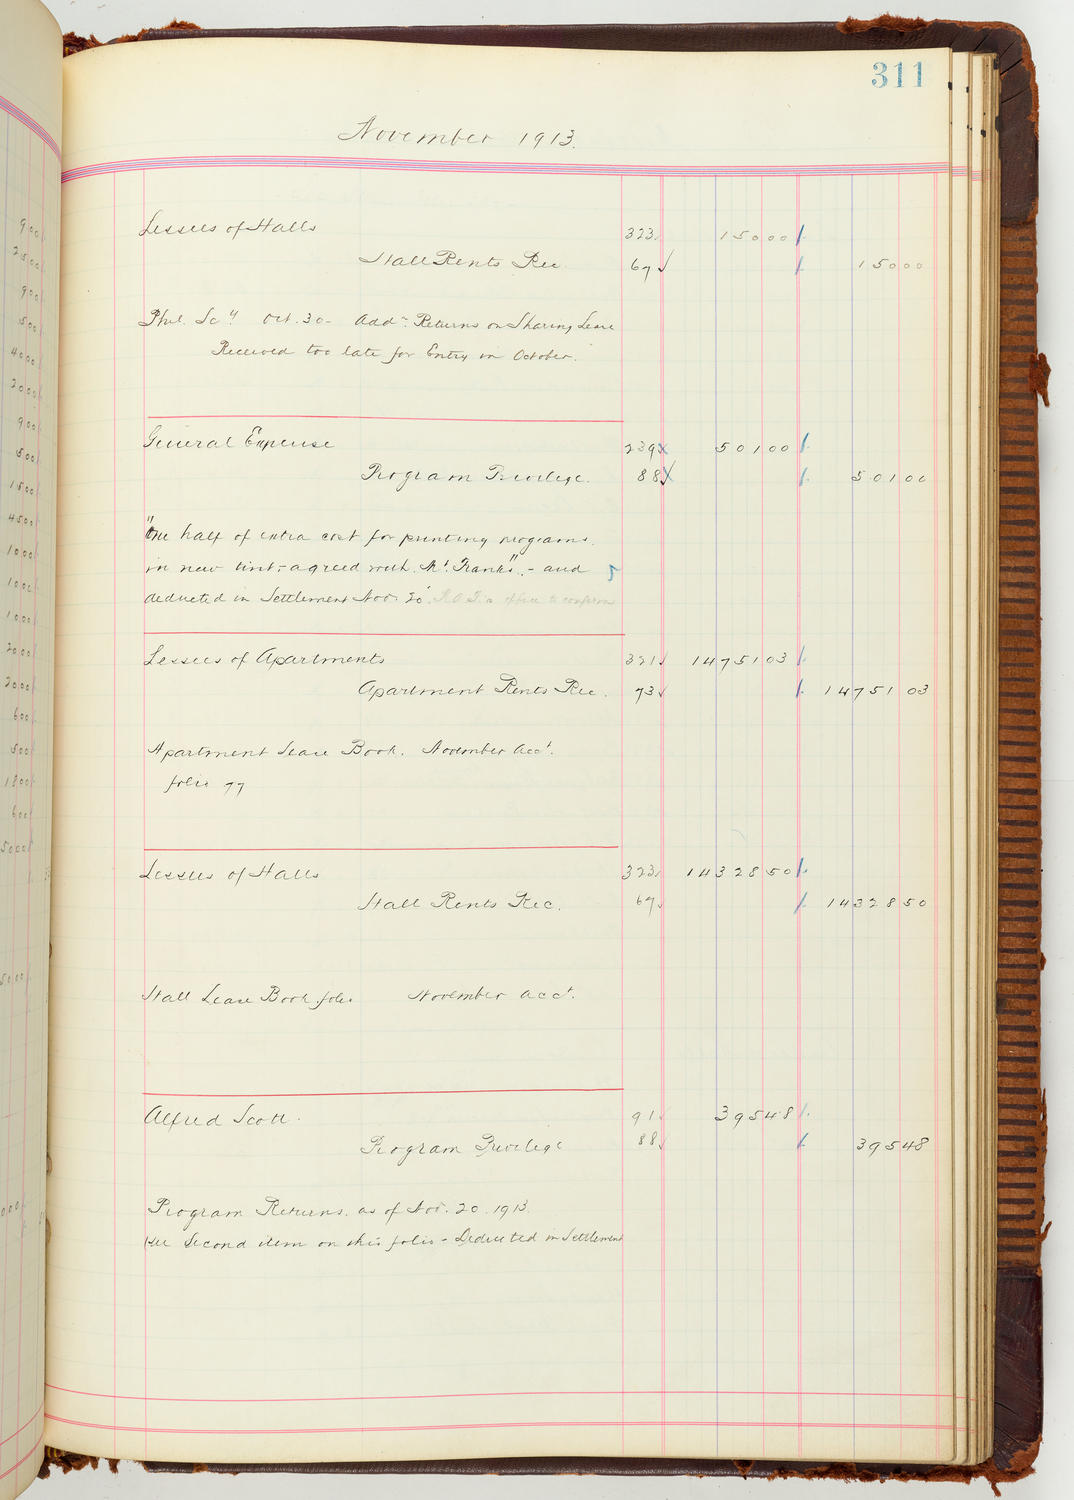 311
November 1913.
Lessees of Halls 323 15000
Hall Rents Rec. 67 15000
Phil. Socy Oct. 30 - Addl Returns on Sharing Lease
Received too late for Entry in October.
General Expense 239 50100
Program Privilege. 88 50100
"One half of extra cost for printing programs.
in new tint - agreed with Mr. Franks". - and
deducted in Settlement Nov. 20. office to confirm
Lessees of Apartments 321 1475103
Apartment Rents Rec. 73 1475103
Apartment Lease Book. November acct.
folio 77
Lessees of Halls 323 1432850
Hall Rents Rec. 67 1432850
Hall Lease Book folio November acct.
Alfred Scott. 91 39548
Program Privilege 88 39548
Program Returns. as of Nov. 20. 1913.
(see Second item on this folio - Deducted in Settlement
900
2500
900
500
4000
2000
900
500
1500
4500
1000
1000
1000
2000
2000
600
500
1800
600
5000